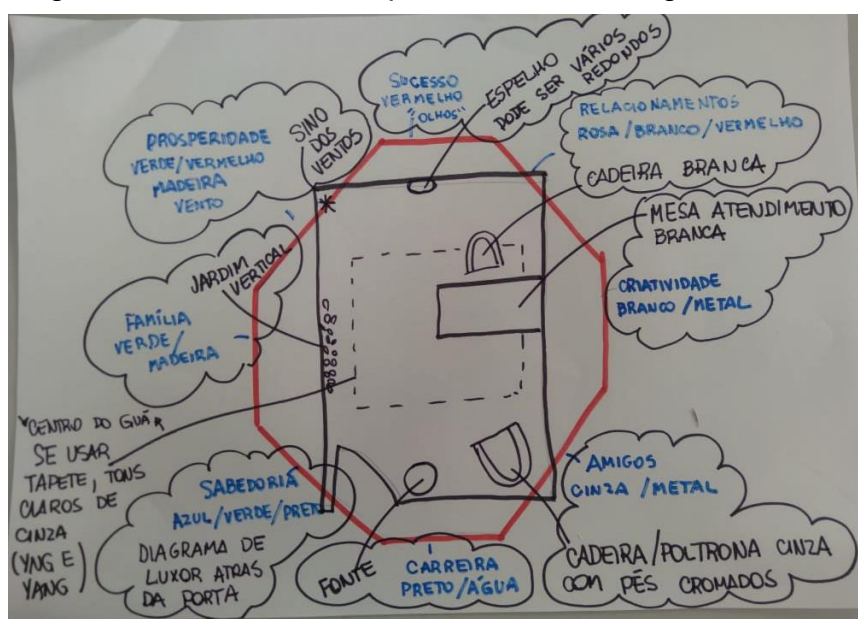 SUCESSO
VERMELHO
"OLHOS"
ESPELHO
PODE SER VÁRIOS
REDONDOS
PROSPERIDADE
VERDE/VERMELHO
MADEIRA
VENTO
SINO
DOS
VENTOS
RELACIONAMENTOS
ROSA/BRANCO/VERMELHO
CADEIRA BRANCA
MESA ATENDIMENTO
BRANCA
CRIATIVIDADE
BRANCO/METAL
JARDIM
VERTICAL
FAMÍLIA
VERDE/
MADEIRA
"CENTRO DO GUÁ"
SE USAR
TAPETE, TONS
CLAROS DE
CINZA
(YNG E
YANG)
SABEDORIA
AZUL/VERDE/PRETO
DIAGRAMA DE
LUXOR ATRAS
DA PORTA
FONTE
CARREIRA
PRETO/ÁGUA
AMIGOS
CINZA/METAL
CADEIRA/POLTRONA CINZA
COM PÉS CROMADOS